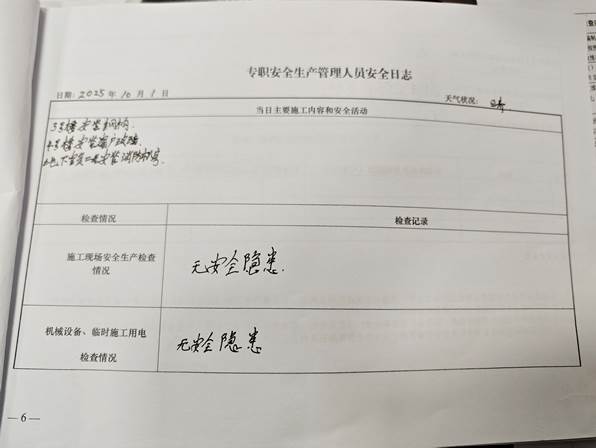 专职安全生产管理人员安全日志
日期: 2025 年 10 月 1 日 天气状况: 晴
当日主要施工内容和安全活动
3号楼安装钢构
4号楼安装窗户玻璃
安装消防
检查情况 检查记录
施工现场安全生产检查
情况
无安全隐患.
机械设备、临时施工用电
检查情况
无安全隐患
—6—